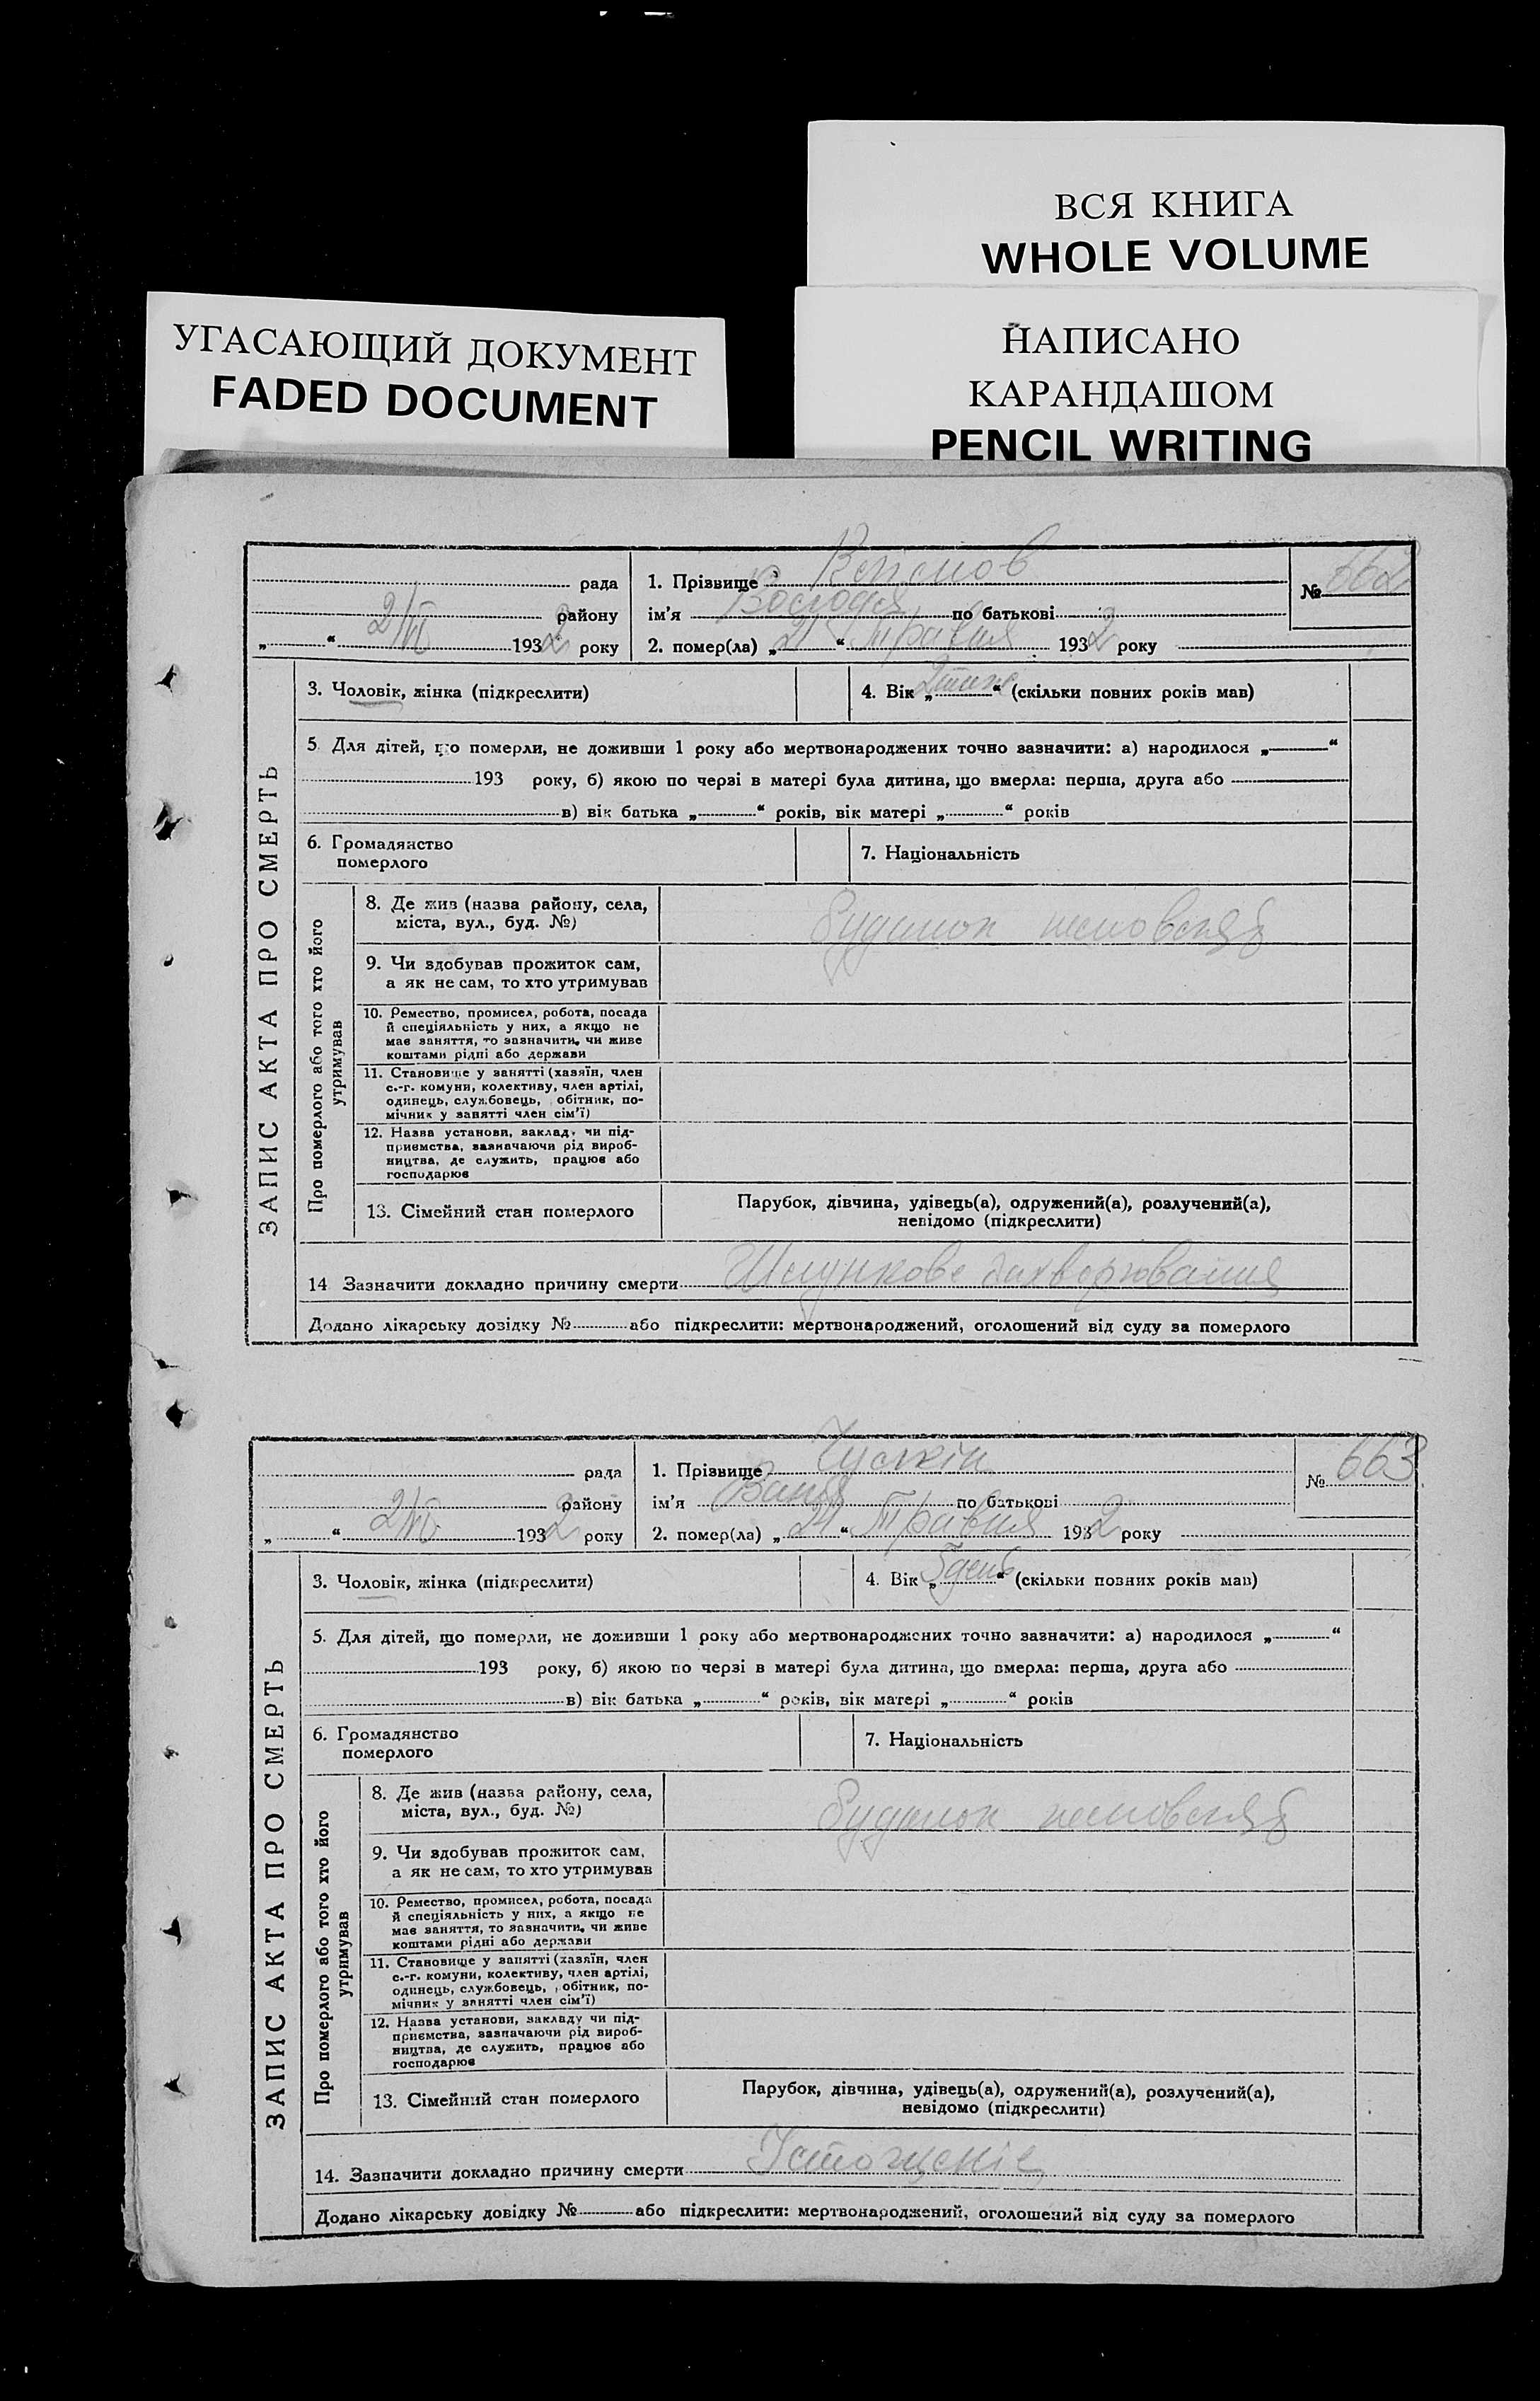 ВСЯ КНИГА
WHOLE VOLUME
НАПИСАНО
КАРАНДАШОМ
PENCIL WRITING
УГАСАЮЩИЙ ДОКУМЕНТ
FADED DOCUMENT
ЗАПИС АКТА ПРО СМЕРТЬ
рада
району
„ “ 2/VI 1932 року
1. Прізвище
ім'я Володя по батькові
2. помер(ла) „21“ Травня 1932 року
№ 662
3. Чоловік, жінка (підкреслити)
4. Вік „ “ (скільки повних років мав)
5. Для дітей, що померли, не доживши 1 року або мертвонароджених точно зазначити: а) народилося „ “
193 року, б) якою по черзі в матері була дитина, що вмерла: перша, друга або
в) вік батька „ “ років, вік матері „ “ років
6. Громадянство
померлого
7. Національність
Про померлого або того хто його
утримував
8. Де жив (назва району, села,
міста, вул., буд. №)
будинок немовлят
9. Чи здобував прожиток сам,
а як не сам, то хто утримував
10. Ремество, промисел, робота, посада
й спеціяльність у них, а якщо не
має заняття, то зазначити, чи живе
коштами рідні або держави
11. Становище у занятті (хазяїн, член
с.-г. комуни, колективу, член артілі,
одинець, службовець, обітник, по-
мічник у занятті член сім'ї)
12. Назва установи, заклад, чи під-
приємства, зазначаючи рід вироб-
ництва, де служить, працює або
господарює
13. Сімейний стан померлого
Парубок, дівчина, удівець(а), одружений(а), розлучений(а),
невідомо (підкреслити)
14 Зазначити докладно причину смерти Шлункове захворювання
Додано лікарську довідку № або підкреслити: мертвонароджений, оголошений від суду за померлого
ЗАПИС АКТА ПРО СМЕРТЬ
рада
району
„ “ 2/VI 1932 року
1. Прізвище
ім'я Ваня по батькові
2. помер(ла) „21“ Травня 1932 року
№ 663
3. Чоловік, жінка (підкреслити)
4. Вік „5 день“ (скільки повних років мав)
5. Для дітей, що померли, не доживши 1 року або мертвонароджених точно зазначити: а) народилося „ “
193 року, б) якою по черзі в матері була дитина, що вмерла: перша, друга або
в) вік батька „ “ років, вік матері „ “ років
6. Громадянство
померлого
7. Національність
Про померлого або того хто його
утримував
8. Де жив (назва району, села,
міста, вул., буд. №)
будинок немовлят
9. Чи здобував прожиток сам,
а як не сам, то хто утримував
10. Ремество, промисел, робота, посада
й спеціяльність у них, а якщо не
має заняття, то зазначити, чи живе
коштами рідні або держави
11. Становище у занятті (хазяїн, член
с.-г. комуни, колективу, член артілі,
одинець, службовець, обітник, по-
мічник у занятті член сім'ї)
12. Назва установи, закладу чи під-
приємства, зазначаючи рід вироб-
ництва, де служить, працює або
господарює
13. Сімейний стан померлого
Парубок, дівчина, удівець(а), одружений(а), розлучений(а),
невідомо (підкреслити)
14. Зазначити докладно причину смерти Істощеніє
Додано лікарську довідку № або підкреслити: мертвонароджений, оголошений від суду за померлого